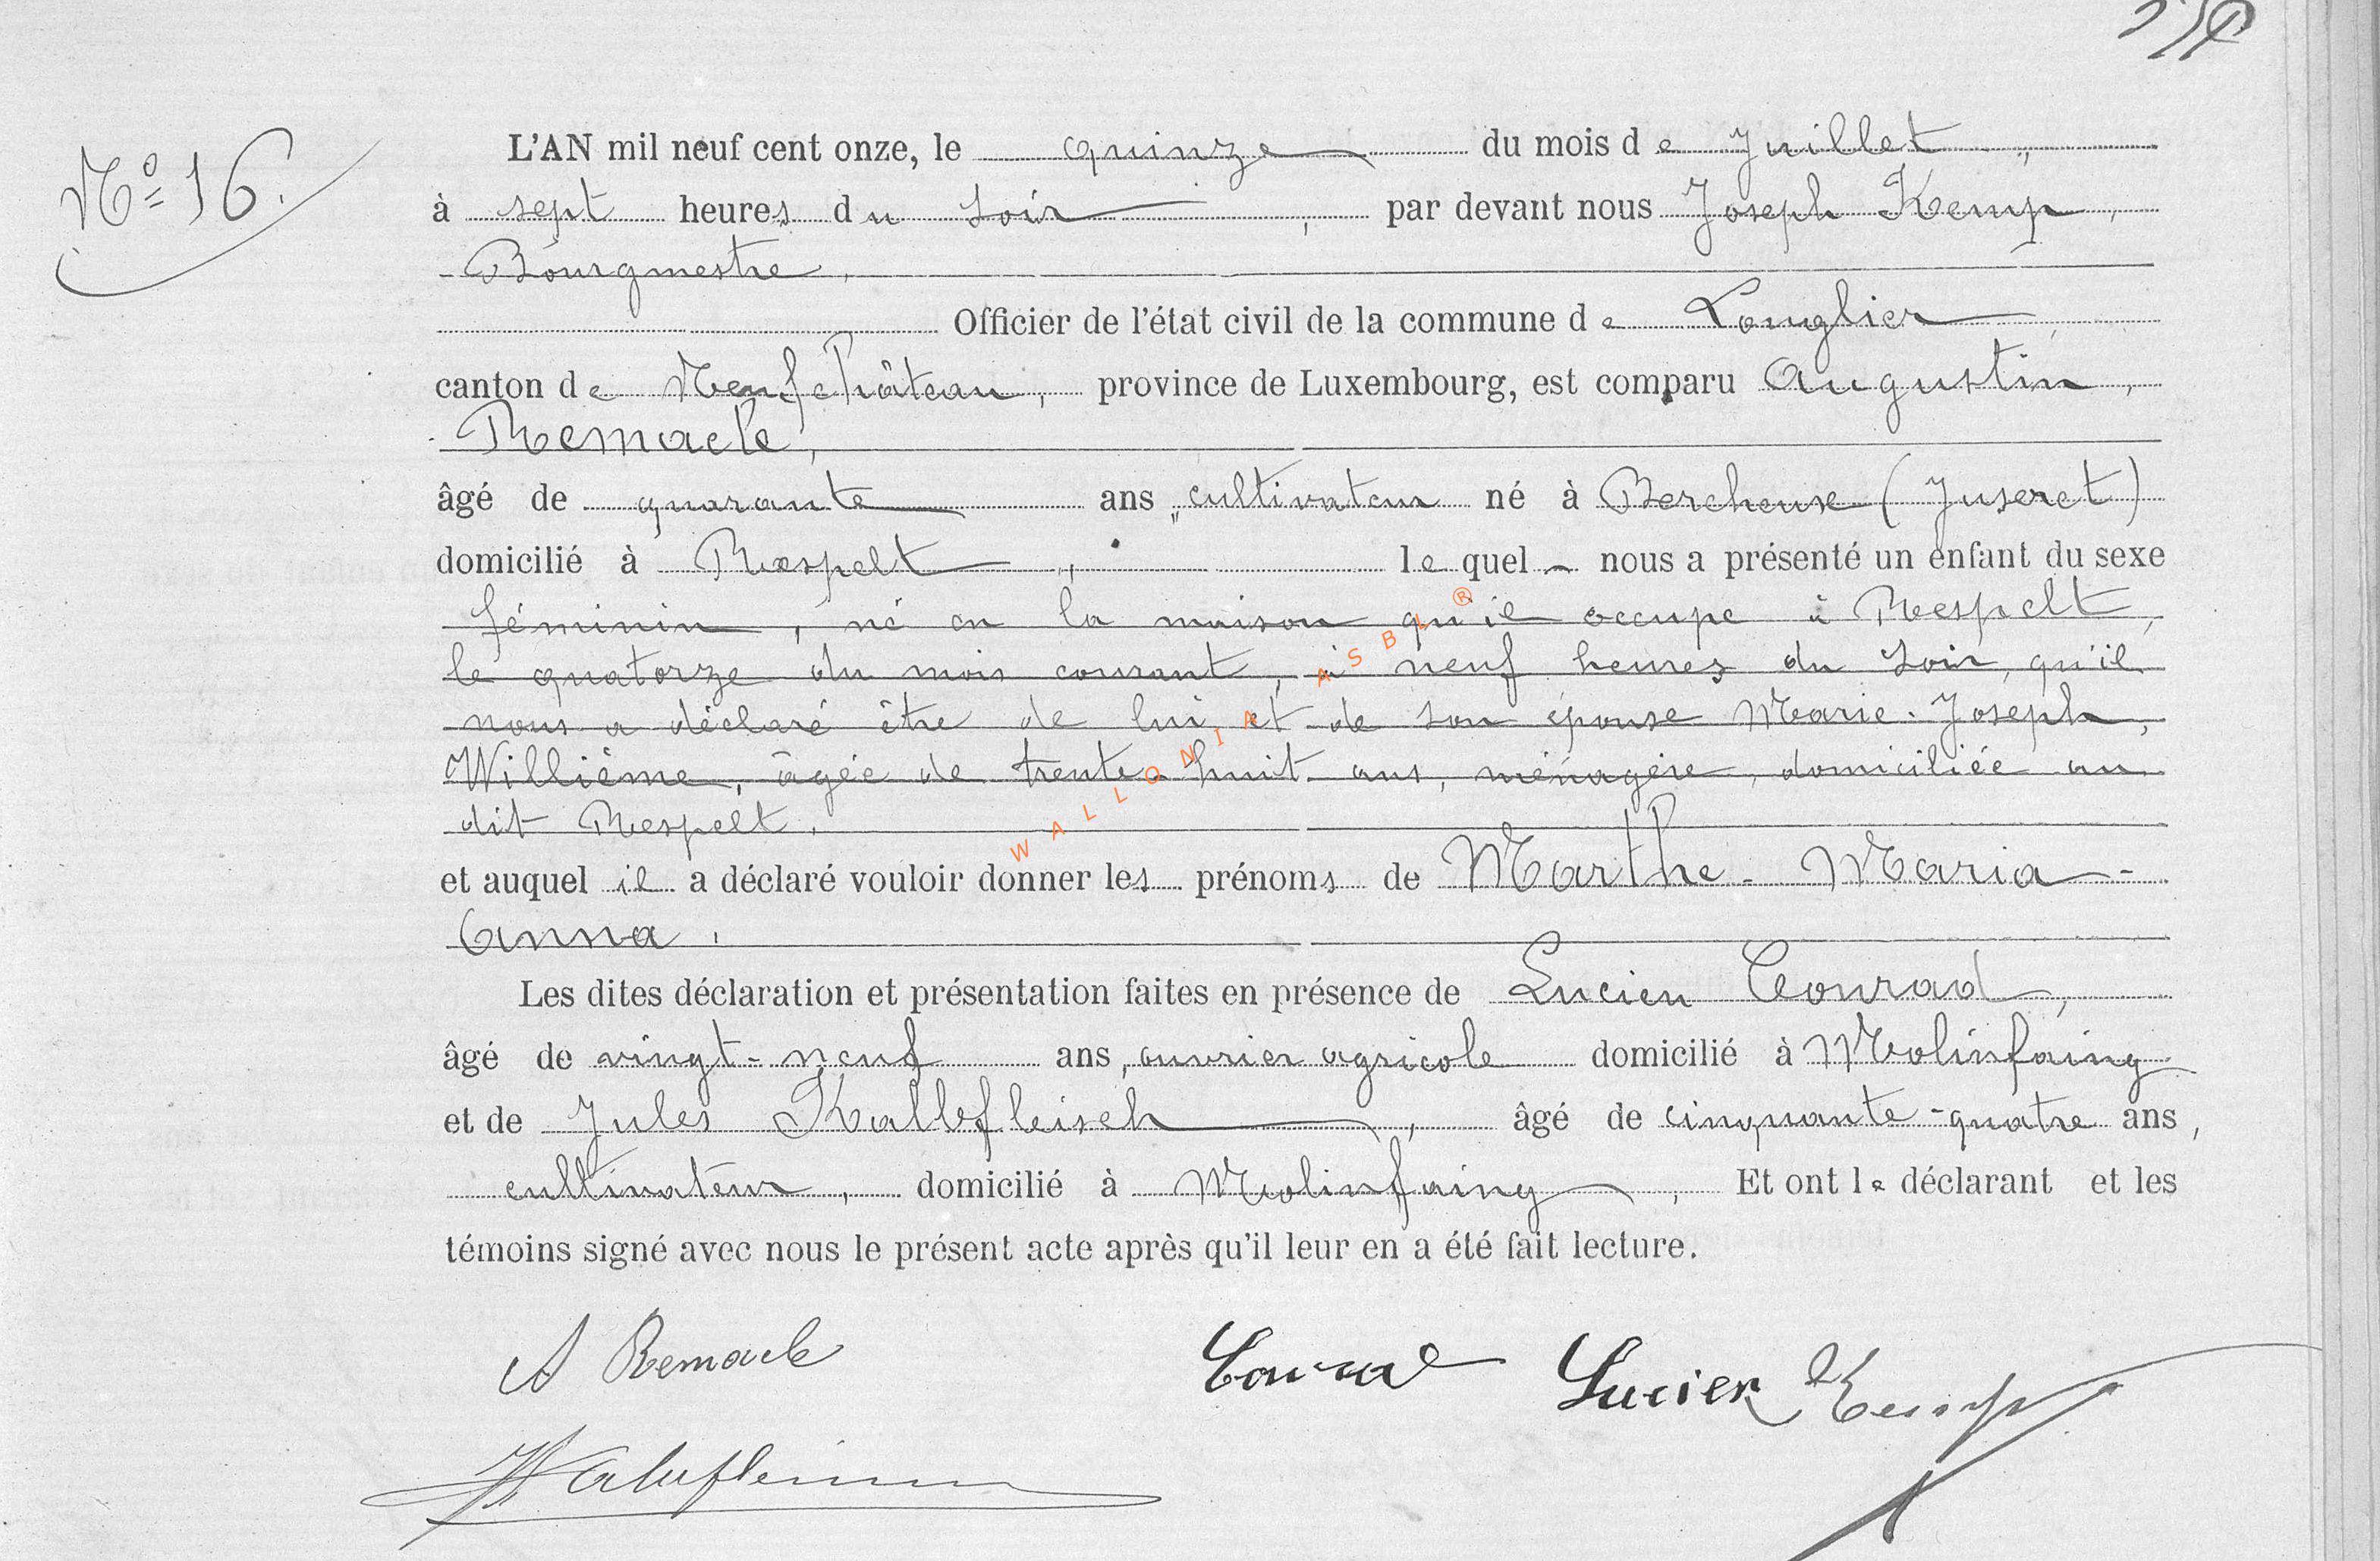 N° 16.
L'AN mil neuf cent onze, le quinze du mois de Juillet,
à sept heures du soir, par devant nous Joseph Kemp,
Bourgmestre,
Officier de l'état civil de la commune de Longlier,
canton de Neufchâteau, province de Luxembourg, est comparu Augustin,
Remacle,
âgé de quarante ans, cultivateur né à Bercheuse (Juseret)
domicilié à Respelt, lequel nous a présenté un enfant du sexe
féminin, né en la maison qu'il occupe à Respelt,
le quatorze du mois courant, à neuf heures du soir, qu'il
nous a déclaré être de lui et de son épouse Marie-Joseph,
Willième, âgée de trente-huit ans, ménagère, domiciliée au
dit Respelt.
et auquel il a déclaré vouloir donner les prénoms de Marthe-Maria-
Anna.
Les dites déclaration et présentation faites en présence de Lucien Conrad,
âgé de vingt-neuf ans, ouvrier agricole domicilié à Molinfaing
et de Jules Kalbfleisch, âgé de cinquante-quatre ans,
cultivateur, domicilié à Molinfaing, Et ont le déclarant et les
témoins signé avec nous le présent acte après qu'il leur en a été fait lecture.
A Remacle
Conrad Lucien Kemp
WALLONIA ASBL ®